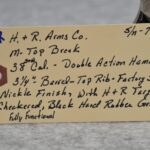 H. + R. Arms Co. S/n-7
M- Top Break
38 Cal. - Double Action Hamm
3 1/4" Barrel- Top Rib- Factory
Nickle Finish, with H + R Targ
Checkered, Black Hard Rubber Gr
Fully Functional